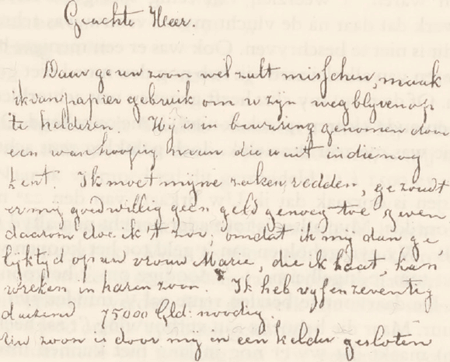 Geachte Heer.
Daar ge uw zoon wel zult misschen, maak
ik van papier gebruik om u zijn wegblyven op
te helderen. Hy is in bewaring genomen door
een wanhoopig man die u uit indie nog
kent. Ik moet mijne zaken redden, ge zoudt
er my goedwillig geen geld genoeg toe geven
daarom doe ik 't zoo, omdat ik mij dan ge,
lijktyd op uw vrouw Marie, die ik haat, kan
wreken in haren zoon. Ik heb vyf en zeventig
duizend 75000 Gld: noodig.
Uw zoon is door my in een kelder gesloten